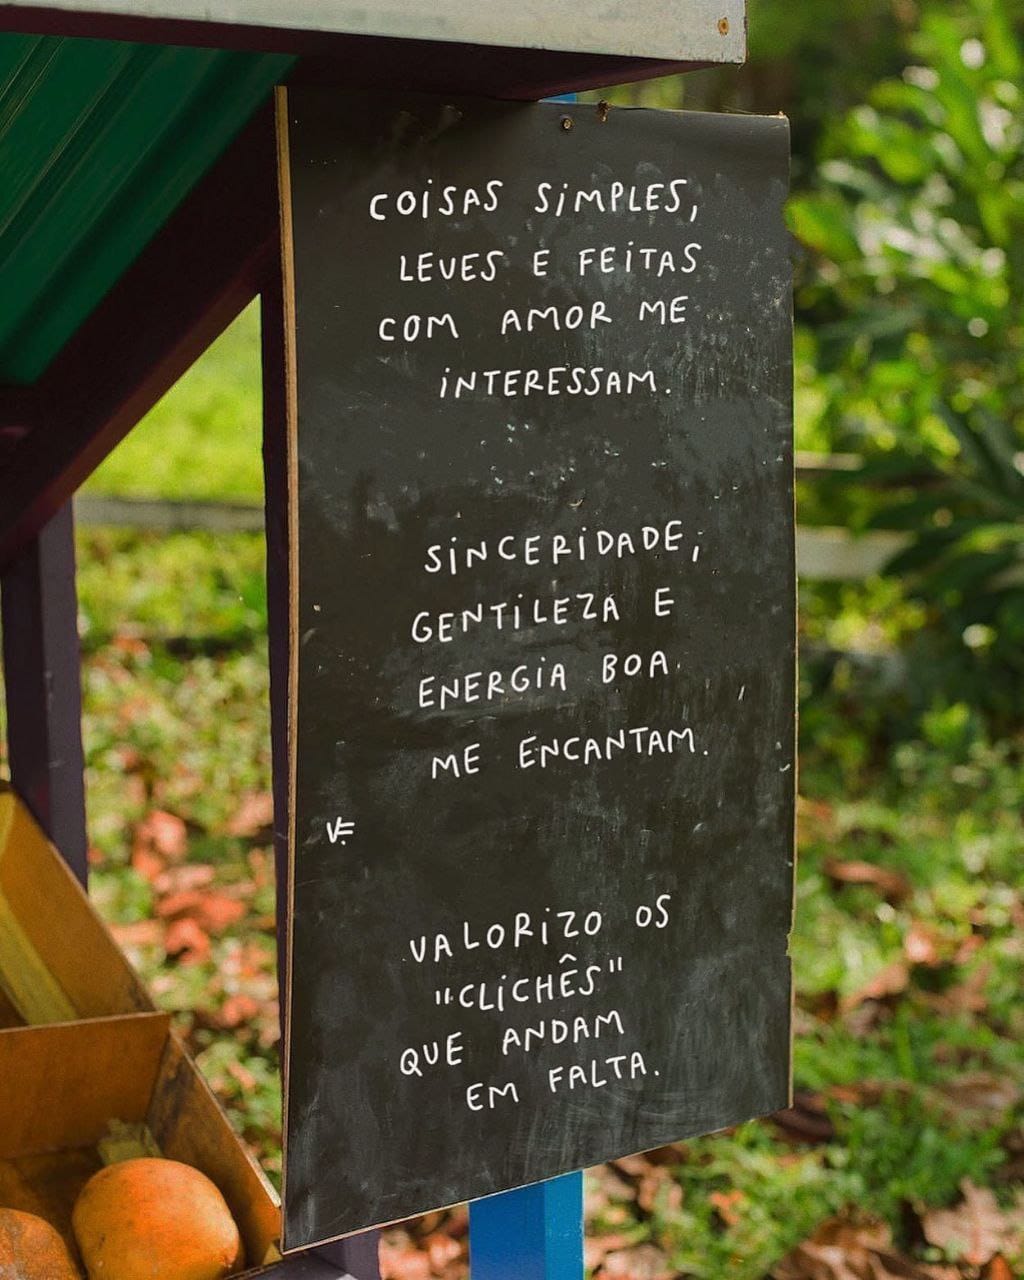 COISAS SIMPLES,
LEVES E FEITAS
COM AMOR ME
INTERESSAM.
SINCERIDADE,
GENTILEZA E
ENERGIA BOA
ME ENCANTAM.
VALORIZO OS
"CLICHÊS"
QUE ANDAM
EM FALTA.